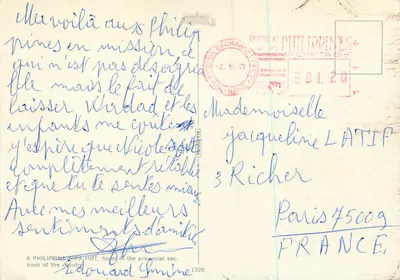 Me voilà aux Philip
pines en mission, ce
qui n'est pas désagréa
ble mais le fait de
laisser Widad et les
enfants me coûte
J'espère que Nicole soit
complètement rétablie
et que tu te sentes mieux
Avec mes meilleurs
sentiments d'amitié
Edouard
PHILIPPINES
01.20
Mademoiselle
Jacqueline LATIF
3 Richer
Paris 75009
FRANCE
A PHILIPPINE NIPA HUT, found in the provincial sec-
tions of the country.
1326